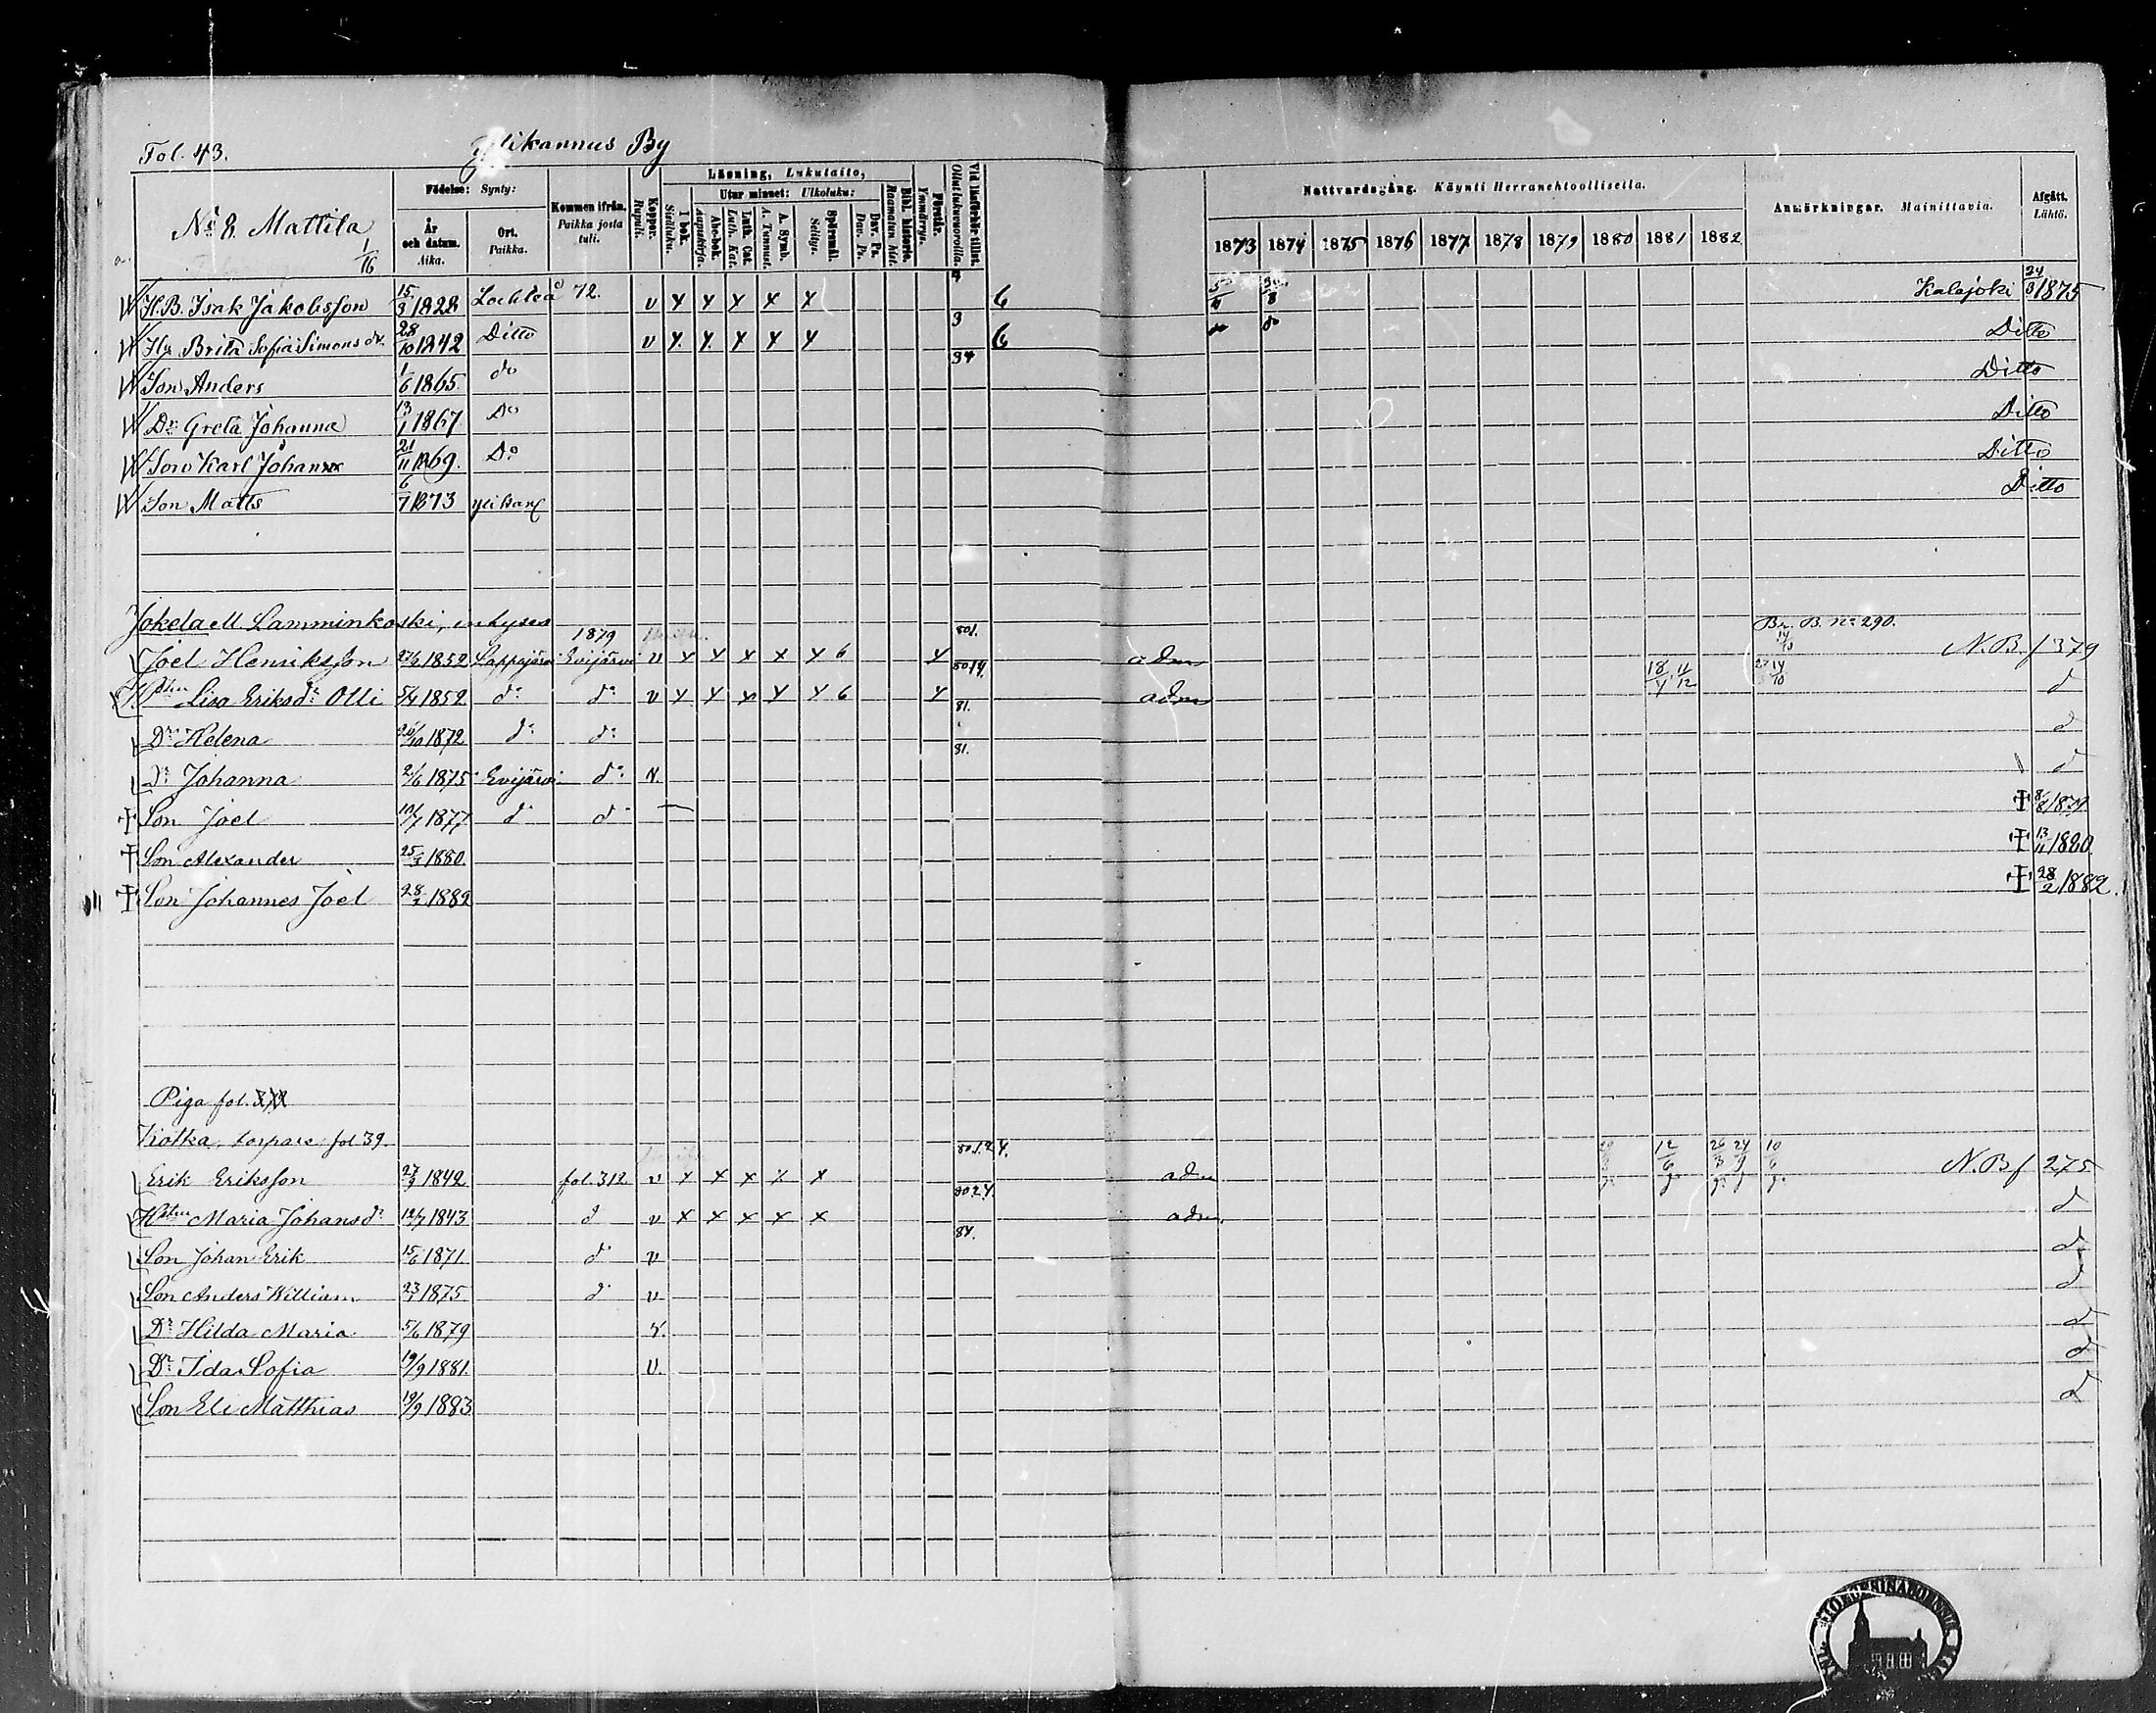 Fol. 43. Ylikannus By
No 8. Mattila 1/16
Födelse: Synty:
År och datum. Aika.
Ort. Paikka.
Kommen ifrån. Paikka josta tuli.
Koppor. Rupuli.
Läsning, Lukutaito,
I bok. Sisäluku.
Utur minnet: Ulkoluku:
Abc-bok. Aapiskirja.
Luth. Cat. Luth. Kat.
A. Symb. A. Tunnust.
Spörsmål. Selitys.
Dav. Ps. Dav. Ps.
Bibl. historia. Raamatun hist.
Förstår. Ymmärrys.
Vid läsförhör tillst. Ollut lukuvuoroilla.
Nattvardsgång. Käynti Herranehtoollisella.
1873 1874 1875 1876 1877 1878 1879 1880 1881 1882
Anmärkningar. Mainittavia.
Afgått. Lähtö.
H.B. Isak Jakobsson 15/3 1828 Lochteå 72. v x x x x x 6 Kalajoki 24/3 1875
Hu Brita Sofia Simonsdr. 28/10 1842 Ditto v x x x x x 3 6 Ditto
Son Anders 1/6 1865 do 34 Ditto
Dr Greta Johanna 13/1 1867 Do Ditto
Son Karl Johan 21/11 1869. Do Ditto
Son Matts 6/7 1873 Ylikan Ditto
Jokela M Lamminkoski, inhyses Br. B. no 290.
Joel Henriksson 1852 Lappajärvi 1879 Evijärvi v x x x x x 6 x 801. adm 14/10 N.B. f 379
Hstru Lisa Eriksdr Olli 5/4 1852 do do v x x x x x 6 x adm 18/4 11/12 d
Dr Helena 26/10 1872 do do 81. d
Dr Johanna 2/6 1875 Evijärvi do v. 81. d
Son Joel 10/7 1877 d d
Son Alexander 25/3 1880. 13/11 1880
Son Johannes Joel 28/2 1882 28/2 1882.
Piga fol.
Kotka, torpare fol 39.
Erik Eriksson 27/3 1842 fol. 312 v x x x x x adm 12/6 26/3 24/9 10/6 N.B f 275
Hstru Maria Johansdr 12/7 1843 d v x x x x x adm. d
Son Johan Erik 15/6 1871. d v 84. d
Son Anders William 23/1 1875 d v d
Dr Hilda Maria 5/6 1879 v. d
Dr Ida Sofia 19/9 1881. v. d
Son Eli Matthias 19/9 1883 d